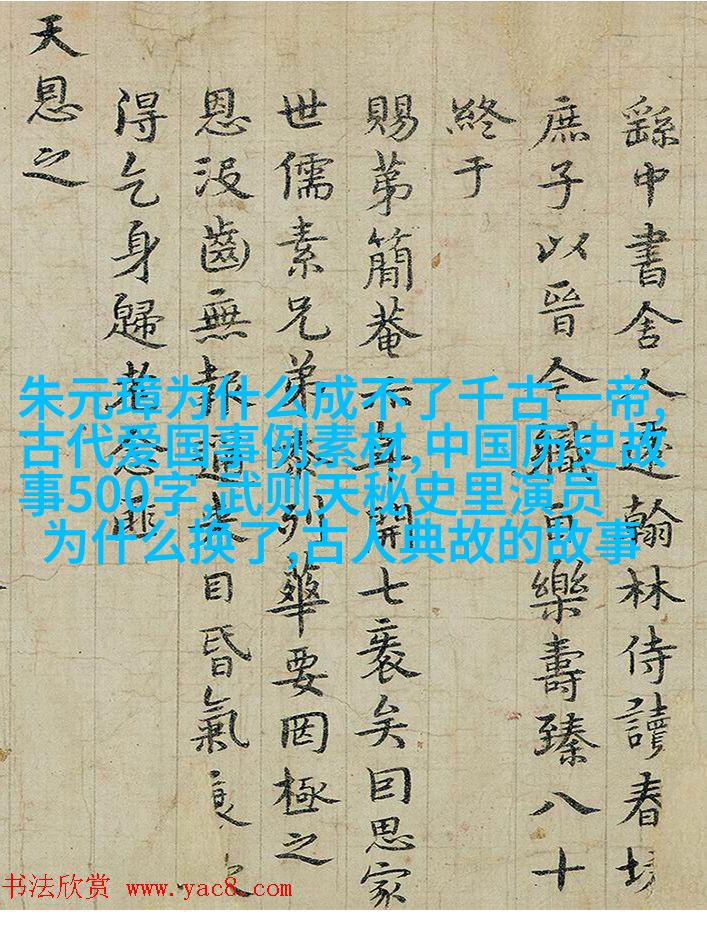 繇中書舍人遷翰林侍讀春坊
庶子以晉今職而樂壽臻八十
終于
賜第簡菴年開七袠矣囙思家
世儒素兄弟叅列華要罔極之
恩没齒無報適目昏氣衰
得乞身歸老念
天恩之
朱元璋为什么成不了千古一帝,
古代爱国事例素材,中国历史故
事500字,武则天秘史里演员
为什么换了,古人典故的故事
书法欣赏 www.yac8.com